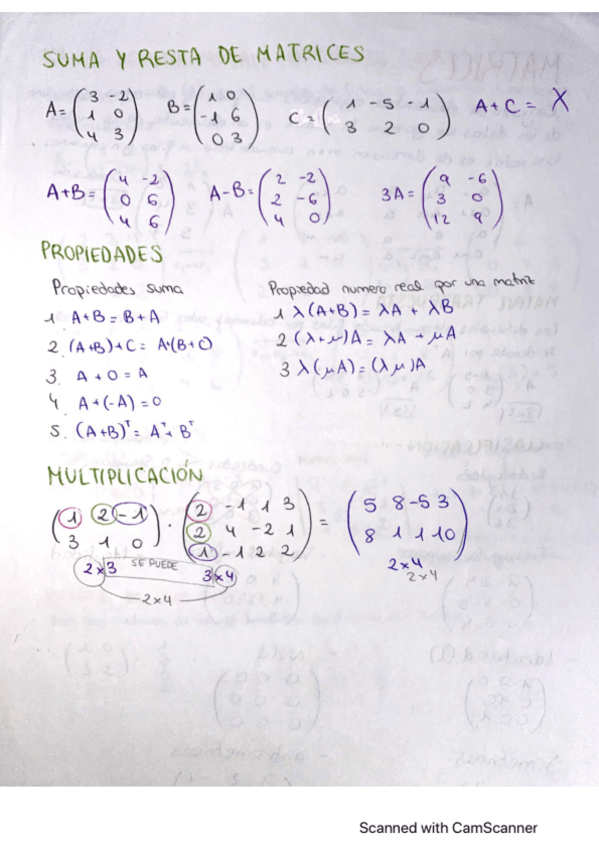 SUMA Y RESTA DE MATRICES
A = (3 -2 / 1 0 / 4 3) B = (1 0 / -1 6 / 0 3) C = (1 -5 -1 / 3 2 0) A + C = X
A+B = (4 -2 / 0 6 / 4 6) A-B = (2 -2 / 2 -6 / 4 0) 3A = (9 -6 / 3 0 / 12 9)
PROPIEDADES
Propiedades suma
1 A+B = B+A
2. (A+B)+C = A+(B+C)
3. A + O = A
4. A+(-A) = O
5. (A+B)ᵀ = Aᵀ + Bᵀ
Propiedad numero real por una matriz
1 λ(A+B) = λA + λB
2 (λ+μ)A = λA + μA
3 λ(μA) = (λμ)A
MULTIPLICACIÓN
(1 2 -1 / 3 1 0) · (2 -1 1 3 / 2 4 -2 1 / 1 -1 2 2) = (5 8 -5 3 / 8 1 1 10)
2x3 SE PUEDE 3x4
2x4
2x4
2x4
Scanned with CamScanner